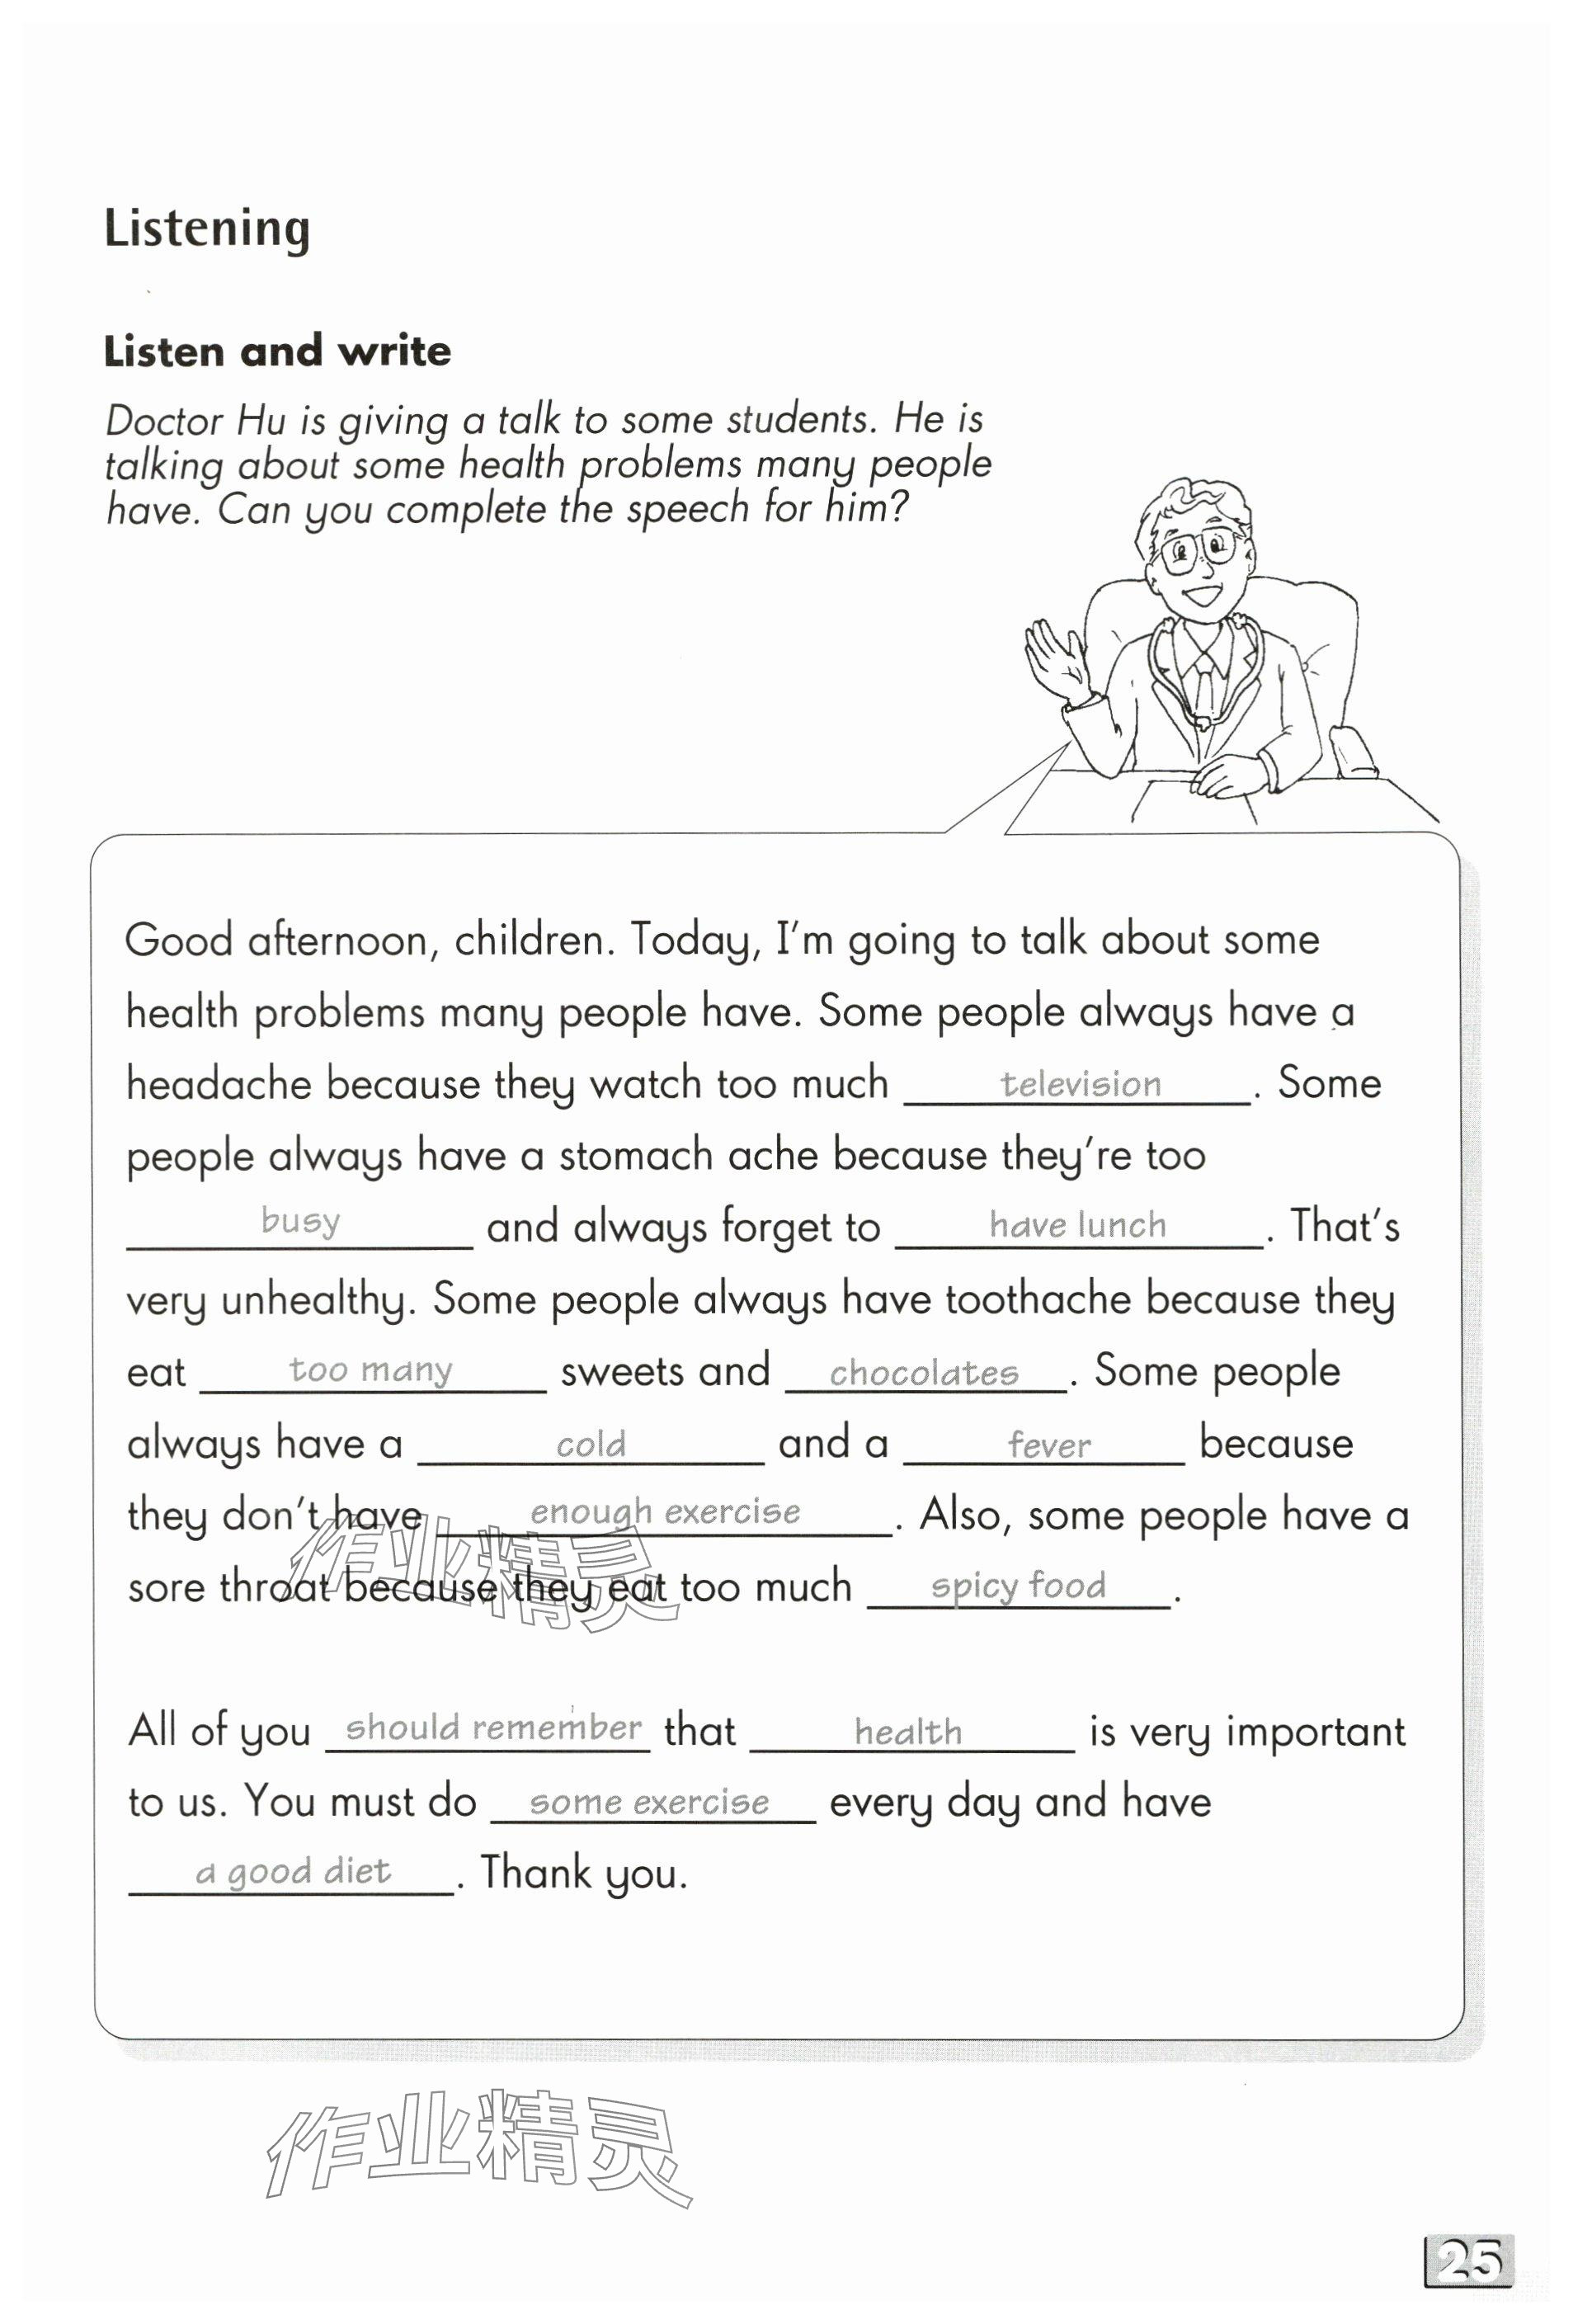 Listening
Listen and write
Doctor Hu is giving a talk to some students. He is
talking about some health problems many people
have. Can you complete the speech for him?
Good afternoon, children. Today, I'm going to talk about some
health problems many people have. Some people always have a
headache because they watch too much television. Some
people always have a stomach ache because they're too
busy and always forget to have lunch. That's
very unhealthy. Some people always have toothache because they
eat too many sweets and chocolates. Some people
always have a cold and a fever because
they don't have enough exercise. Also, some people have a
sore throat because they eat too much spicy food.
作业精灵
All of you should remember that health is very important
to us. You must do some exercise every day and have
a good diet. Thank you.
作业精灵
25